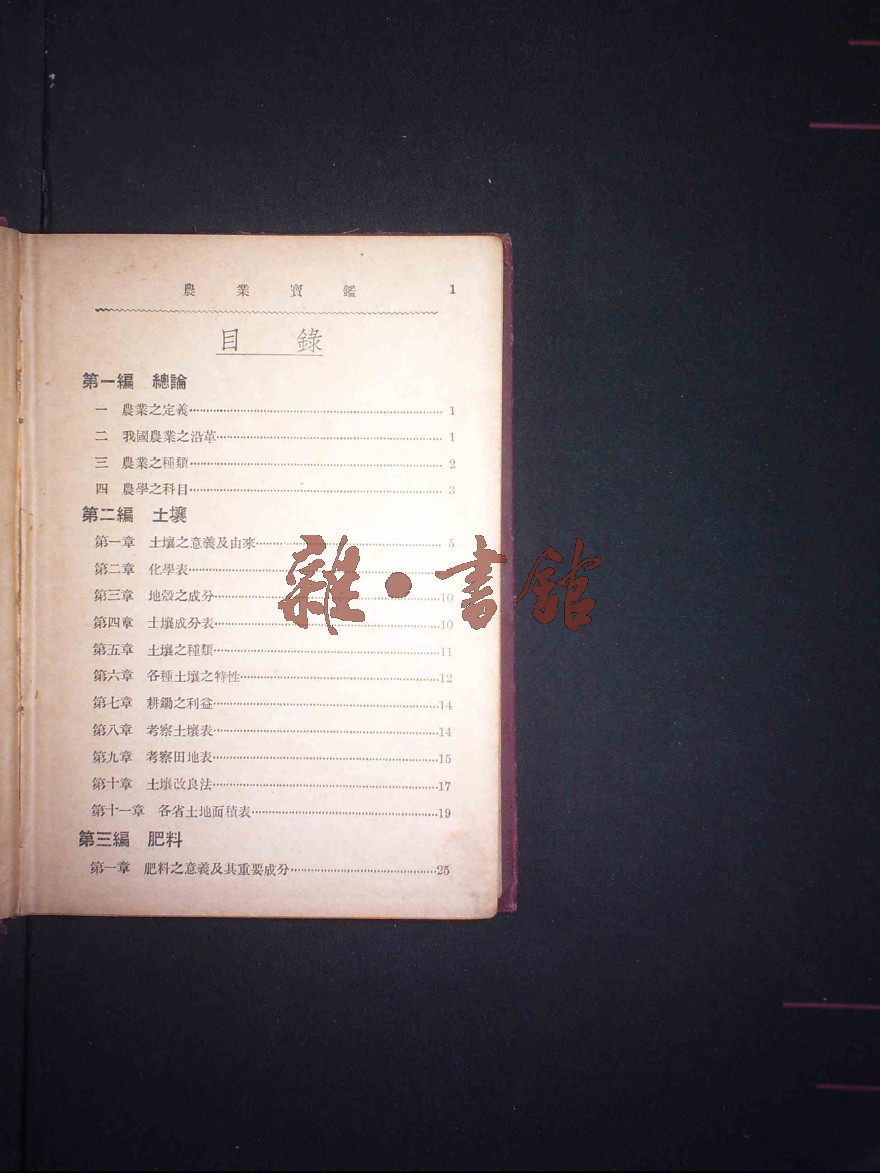 農業寶鑑 1
目錄
第一編 總論
一 農業之定義 1
二 我國農業之沿革 1
三 農業之種類 2
四 農學之科目 3
第二編 土壤
第一章 土壤之意義及由來 5
第二章 化學表
第三章 地殼之成分 10
第四章 土壤成分表 10
第五章 土壤之種類 11
第六章 各種土壤之特性 12
第七章 耕鋤之利益 14
第八章 考察土壤表 14
第九章 考察田地表 15
第十章 土壤改良法 17
第十一章 各省土地面積表 19
第三編 肥料
第一章 肥料之意義及其重要成分 25
雜·書館